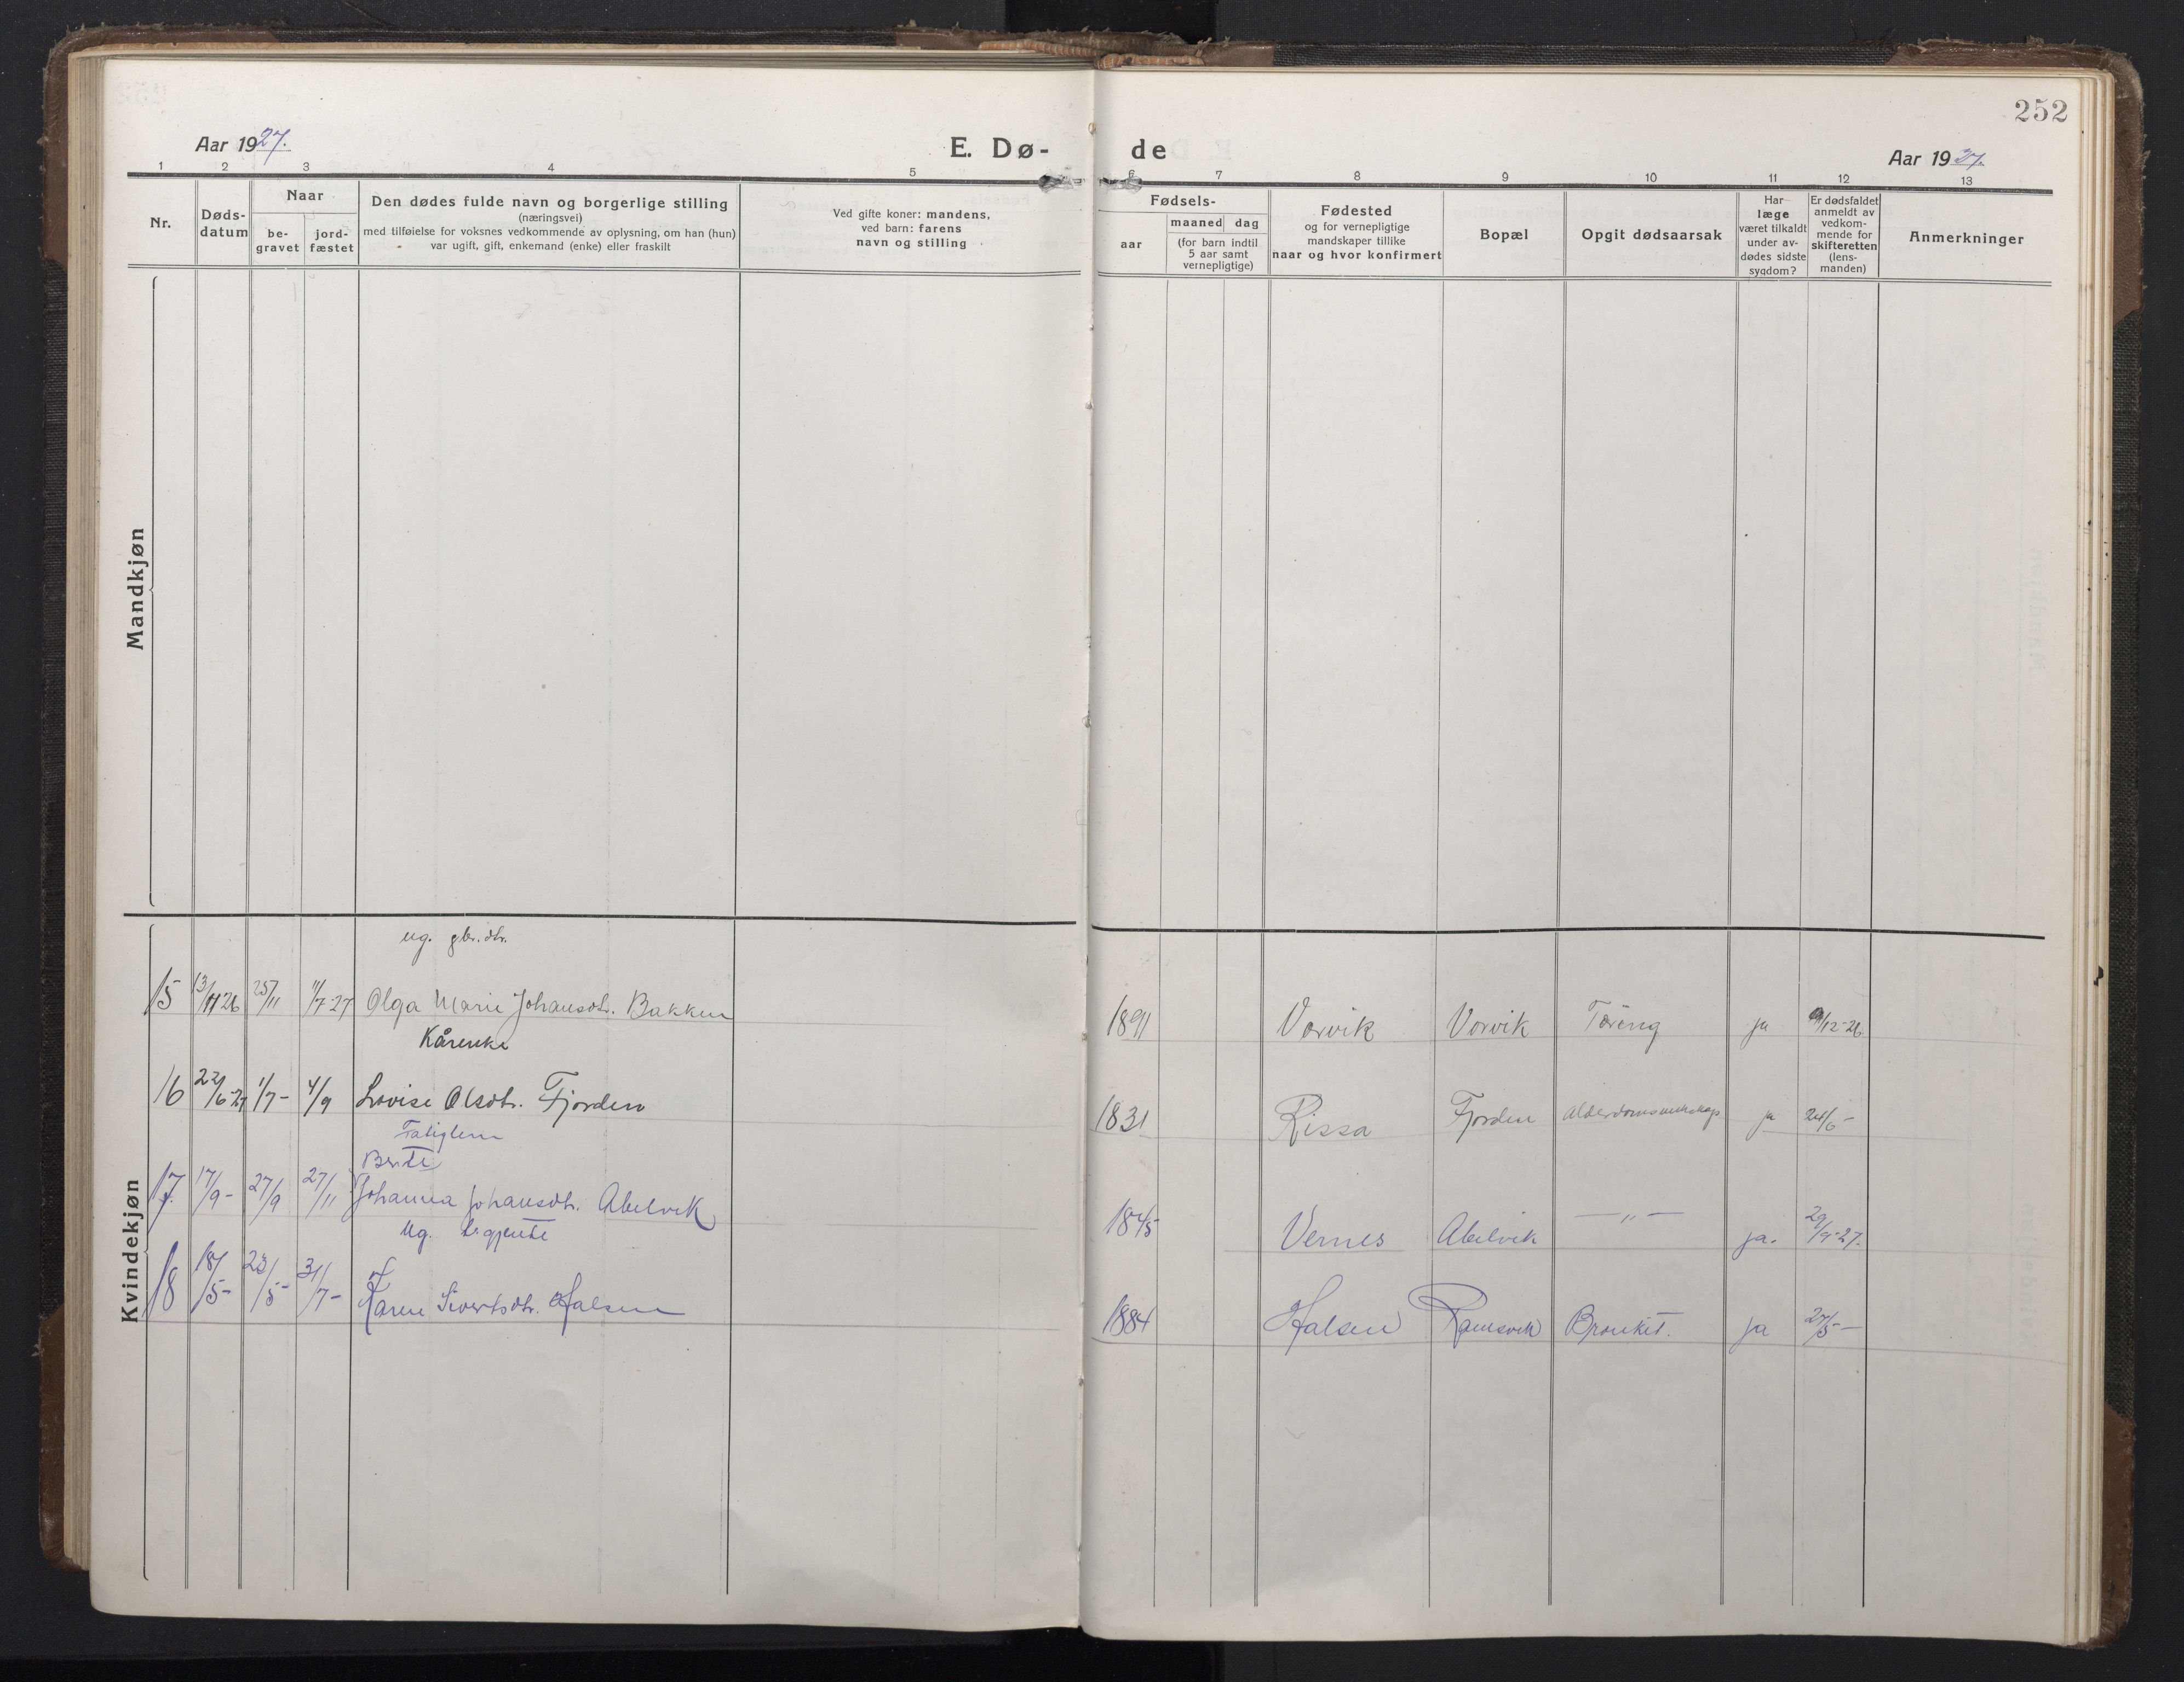 252
Aar 1927.
E. Dø-
de
Aar 1927.
1 2 3 4 5 6 7 8 9 10 11 12 13
Nr.
Døds-
datum
Naar
be-
gravet
jord-
fæstet
Den dødes fulde navn og borgerlige stilling
(næringsvei)
med tilføielse for voksnes vedkommende av oplysning, om han (hun)
var ugift, gift, enkemand (enke) eller fraskilt
Ved gifte koner: mandens,
ved barn: farens
navn og stilling
Fødsels-
aar
maaned dag
(for barn indtil
5 aar samt
vernepligtige)
Fødested
og for vernepligtige
mandskaper tillike
naar og hvor konfirmert
Bopæl
Opgit dødsaarsak
Har
læge
været tilkaldt
under av-
dødes sidste
sygdom?
Er dødsfaldet
anmeldt av
vedkom-
mende for
skifteretten
(lens-
manden)
Anmerkninger
Mandkjøn
Kvindekjøn
ug. gbr. dtr.
15 13/11-26 25/11 11/7-27 Olga Marie Johansdtr. Bakken 1891 Vorvik Vorvik Tæring ja 9/12-26
Kårenke
16 22/6-27 1/7- 4/9 Lovise Olsdtr. Fjorden 1831 Rissa Fjorden Alderdomssvakhet ja 24/6-
Fatiglem
Berte
17. 17/9- 27/9 27/11 Johanna Johansdtr. Abelvik 1845 Vernes Abelvik —„— ja. 29/9-27.
ug.
18 18/5- 23/5- 31/7- Karen Sivertsdtr. Halsen 1884 Halsen Ramsvik Bronkit. ja 27/5-